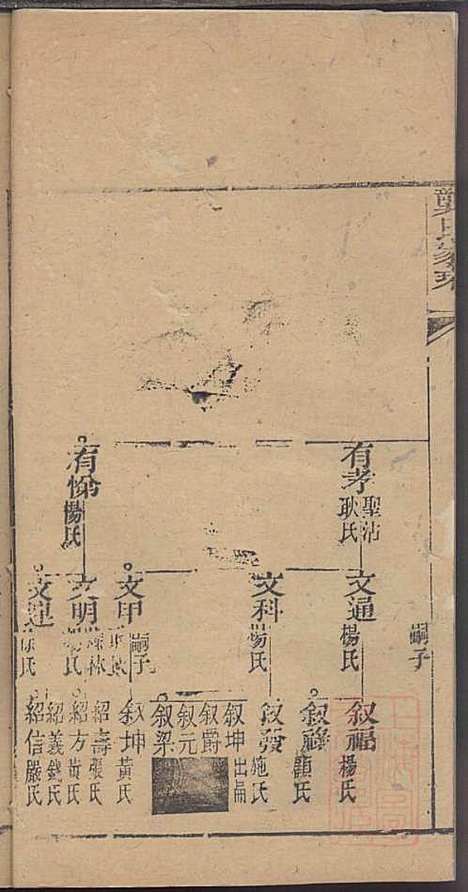 有孝 聖沾 耿氏
有愉 楊氏
嗣子
文通 楊氏
文科 楊氏
文甲 嗣子
文明
文運 徐氏
叙福 楊氏
叙祿 顧氏
叙發 施氏
叙坤 出嗣
叙爵
叙元
叙梁
叙坤 黃氏
紹壽 張氏
紹方 黃氏
紹義 錢氏
紹信 嚴氏